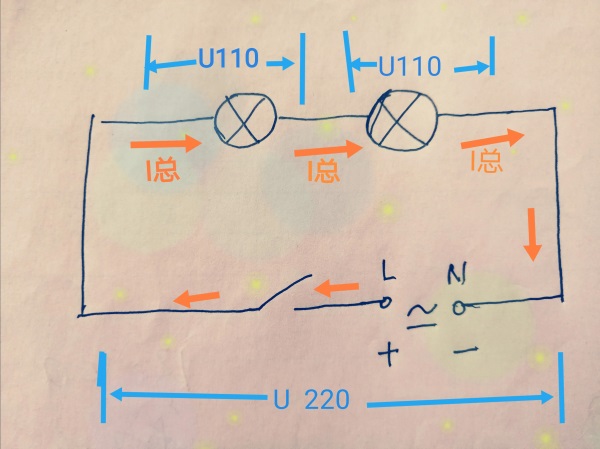 U110 U110
I总 I总 I总
L N
≃
+ −
U 220